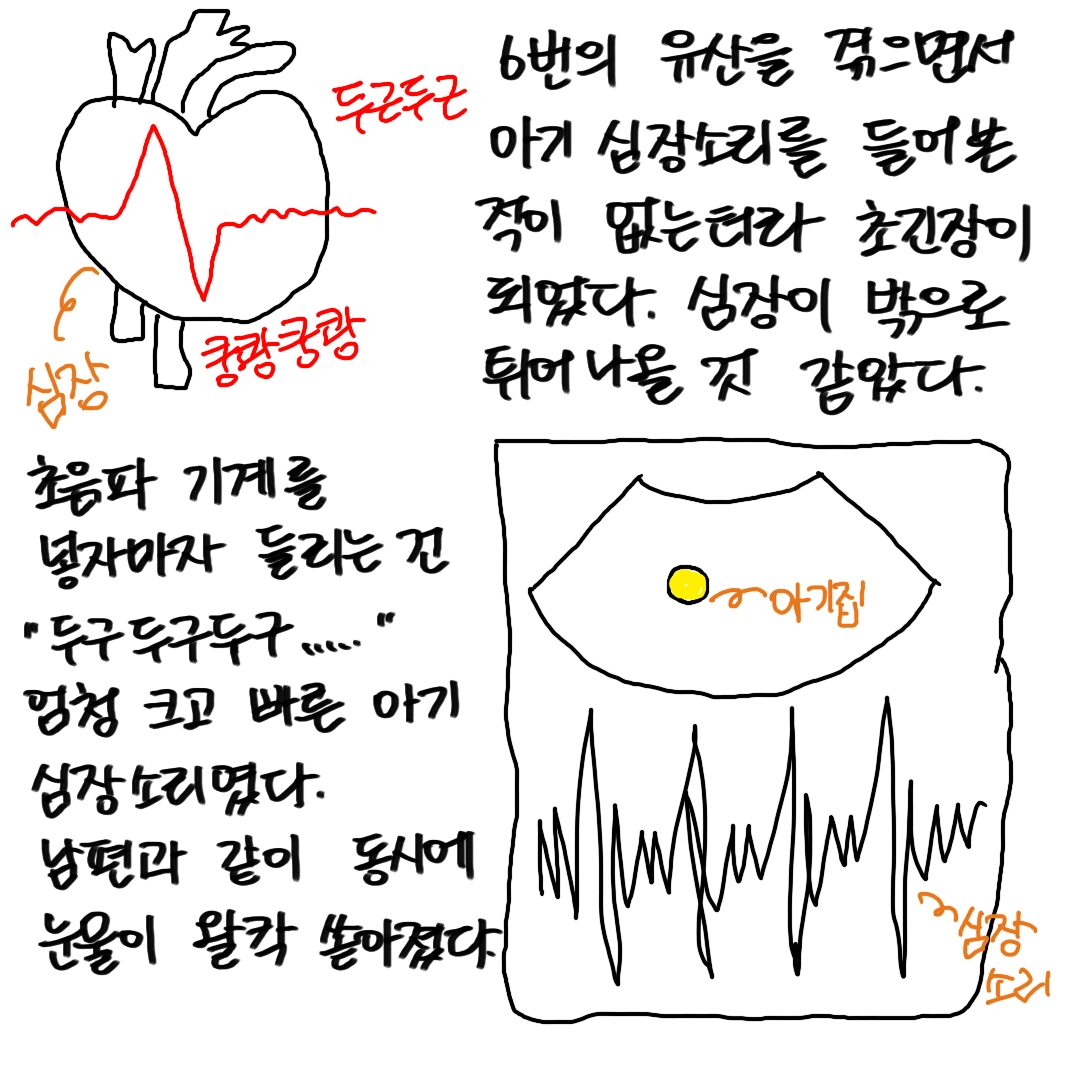 두근두근
쿵쾅쿵쾅
심장
6번의 유산을 겪으면서
아기 심장소리를 들어본
적이 없는터라 초긴장이
되었다. 심장이 밖으로
튀어나올 것 같았다.
초음파 기계를
넣자마자 들리는 건
"두구두구두구....."
엄청 크고 빠른 아기
심장소리였다.
남편과 같이 동시에
눈물이 왈칵 쏟아졌다.
아기집
심장
소리